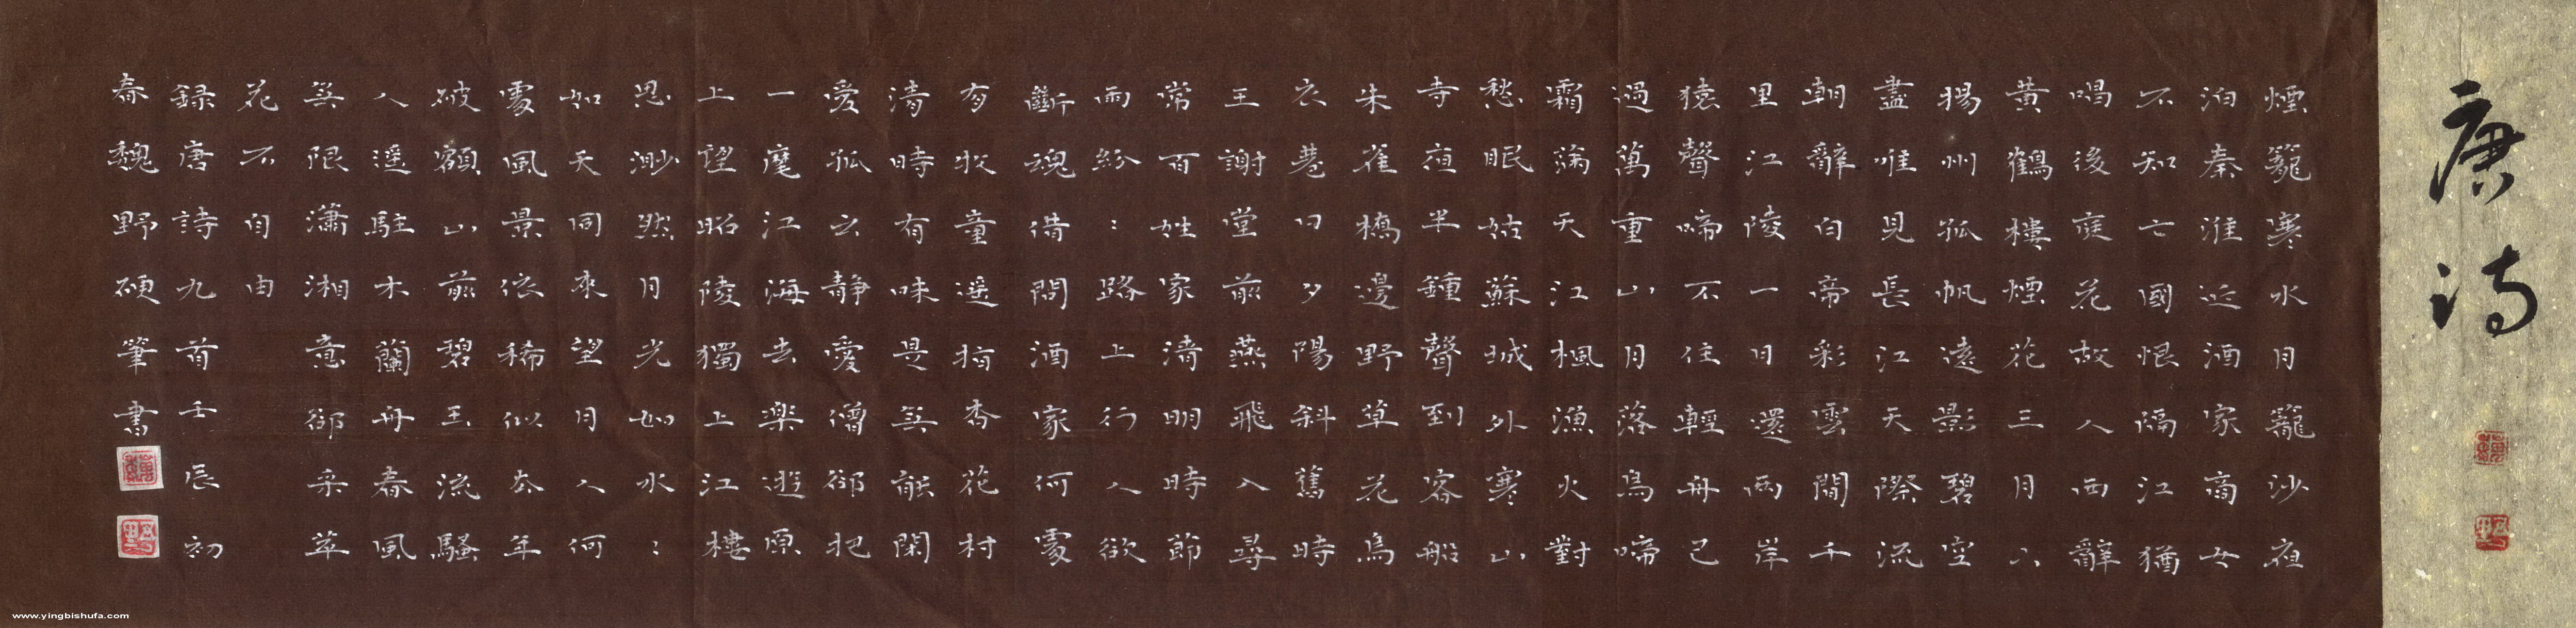 唐诗
煙籠寒水月籠沙夜
泊秦淮近酒家商女
不知亡國恨隔江猶
唱後庭花故人西辭
黃鶴樓煙花三月下
揚州孤帆遠影碧空
盡唯見長江天際流
朝辭白帝彩雲間千
里江陵一日還兩岸
猿聲啼不住輕舟已
過萬重山月落烏啼
霜滿天江楓漁火對
愁眠姑蘇城外寒山
寺夜半鍾聲到客船
朱雀橋邊野草花烏
衣巷口夕陽斜舊時
王謝堂前燕飛入尋
常百姓家清明時節
雨紛：路上行人欲
斷魂借問酒家何處
有牧童遙指杏花村
清時有味是無能閑
愛孤云靜愛僧卻把
一麾江海去樂遊原
上望昭陵獨上江樓
思渺然月光如水：
如天同來望月人何
處風景依稀似去年
破額山前碧玉流騷
人遙駐木蘭舟春風
無限瀟湘意卻采萍
花不自由
録唐詩九首壬辰初
春魏野硬筆書
www.yingbishufa.com